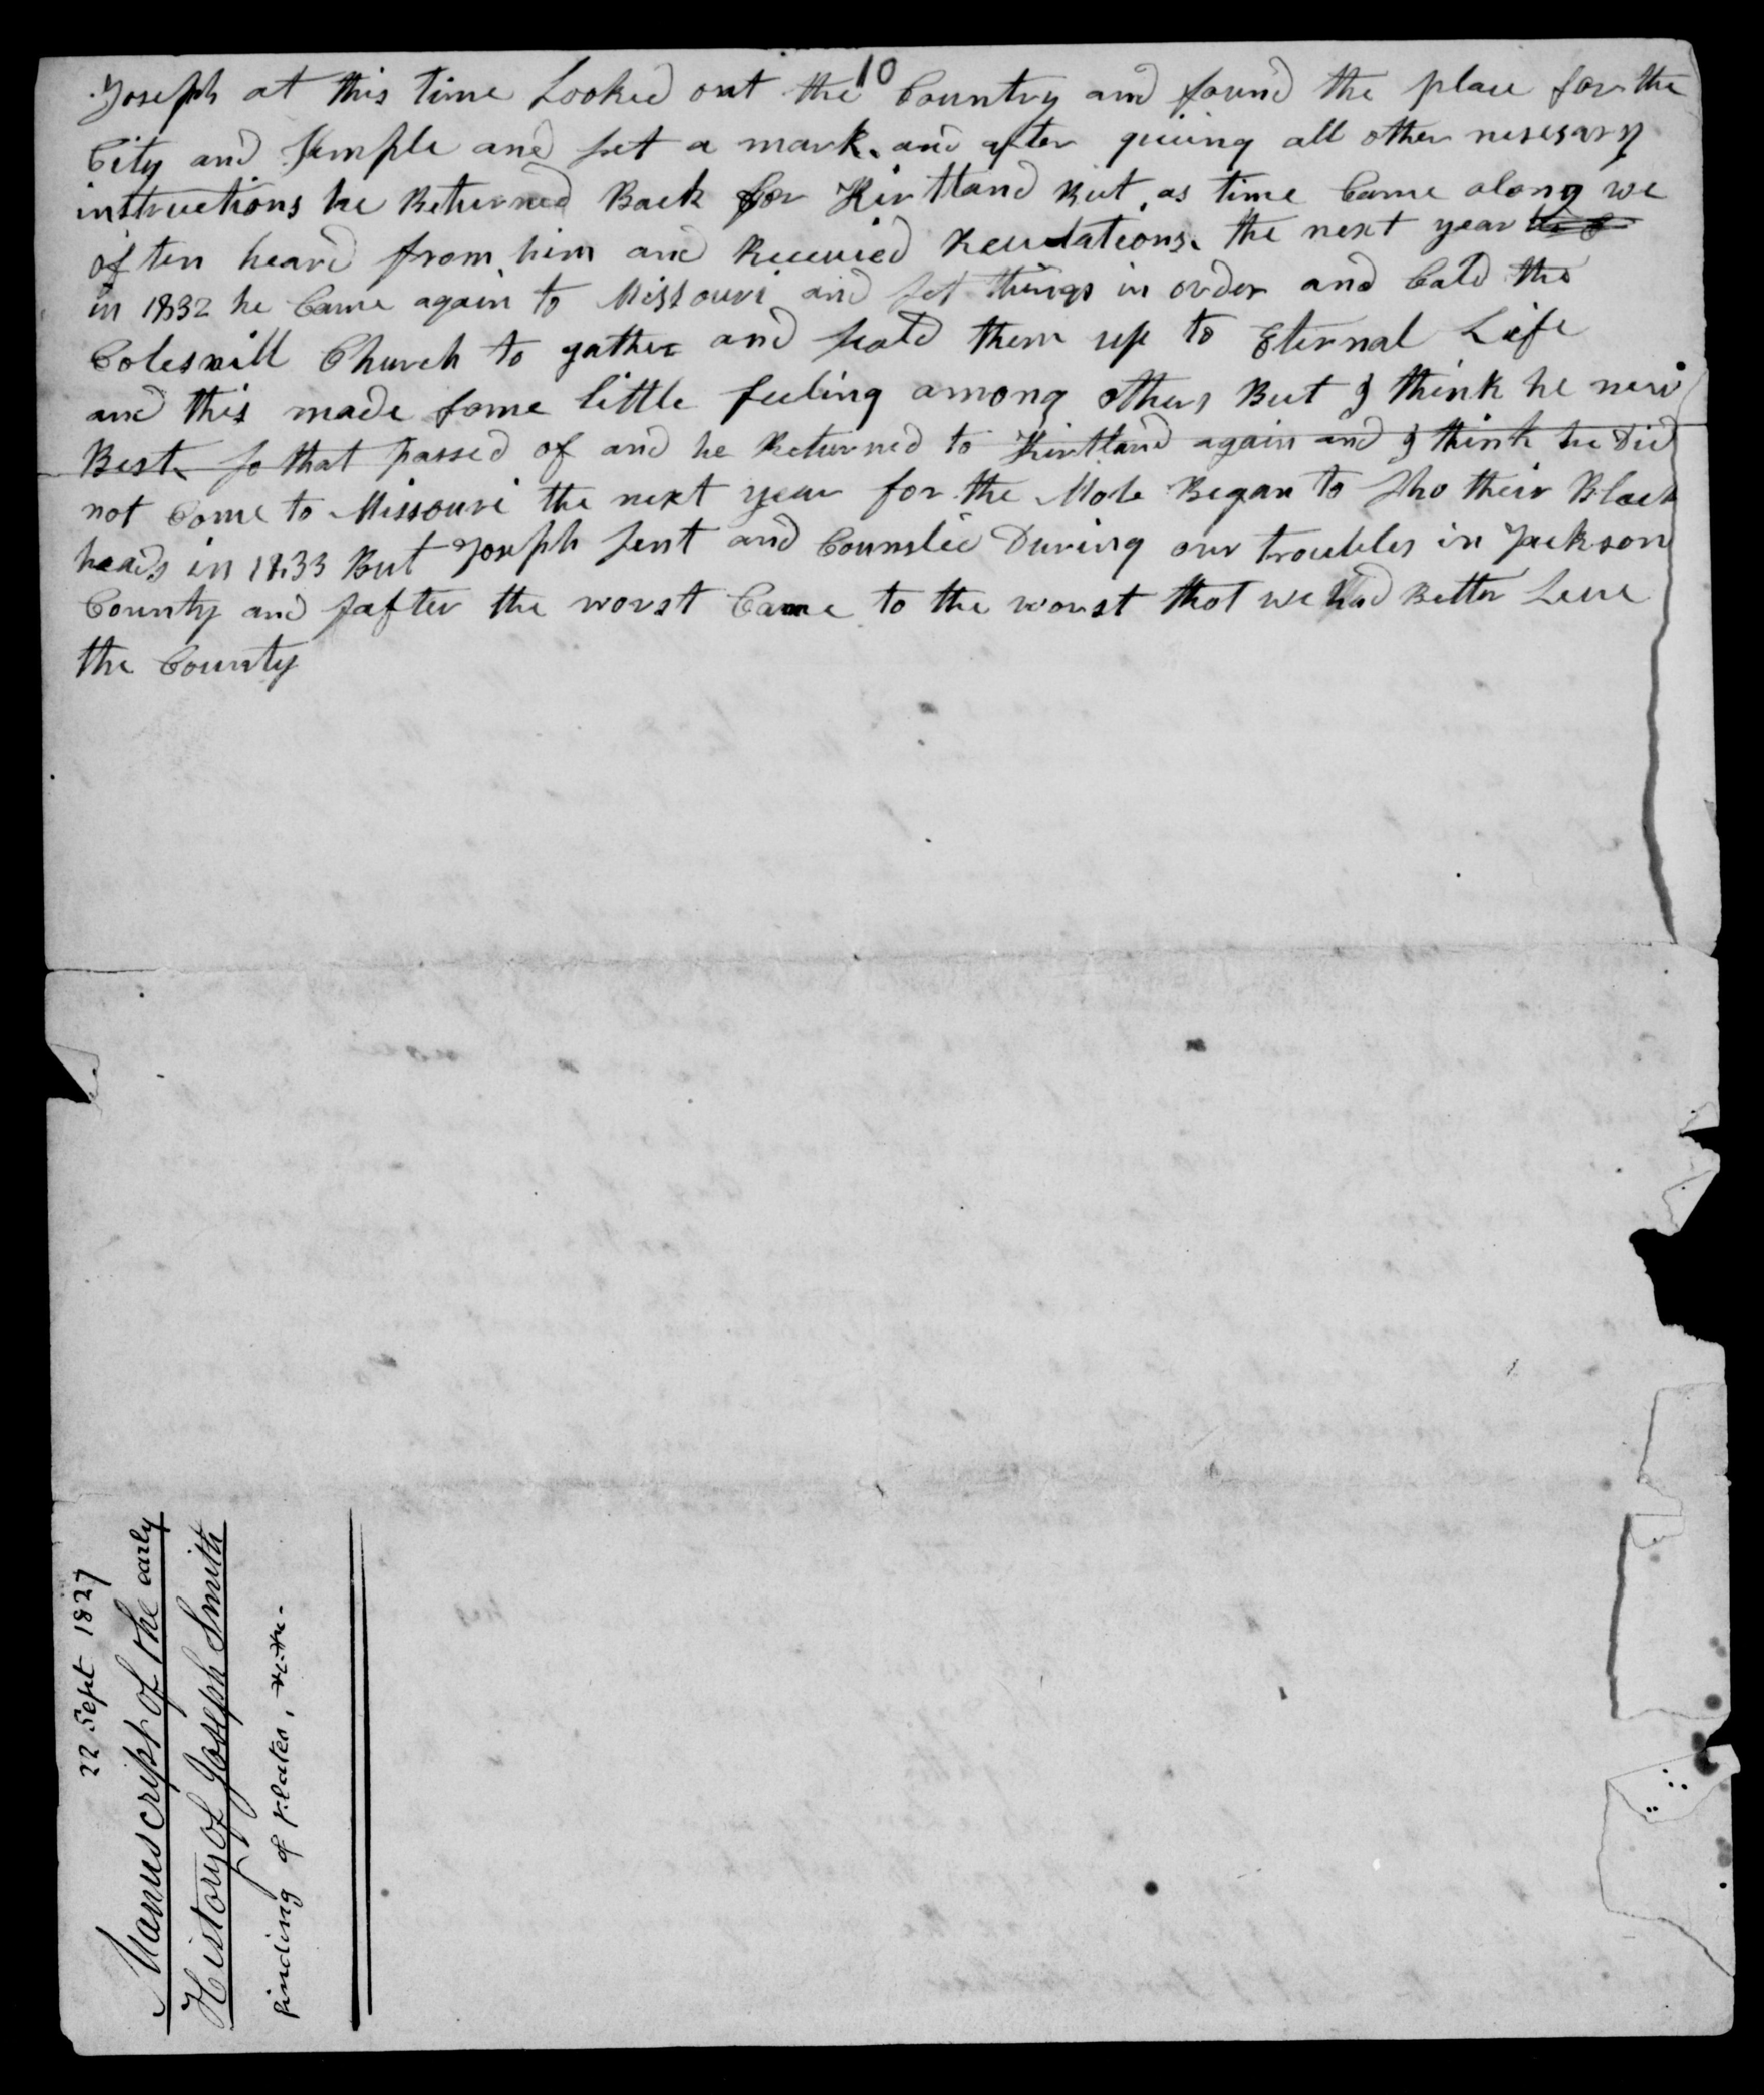 10
Joseph at this time Looked out the Country and found the place for the
City and Temple and set a mark. and after giuing all other nesesary
instructions he Returned Back for Kirtland But, as time Came along we
often heard from him and Receuied Reuelations. the next year
in 1832 he Came again to Missouri and set things in order and Cald the
Colesvill Church to gather and seald them up to Eternal Life
and this made some little feeling among others But I think he new
Best. so that passed of and he Returned to Kirtland again and I think he Did
not Come to Missouri the next year for the Mob Began to sho their Black
heads in 1833 But Joseph sent and Counsled During our troubles in Jackson
County and after the worst Came to the worst that we had Better Leue
the County
22 Sept 1827
Manuscript of the early
History of Joseph Smith
finding of plates,